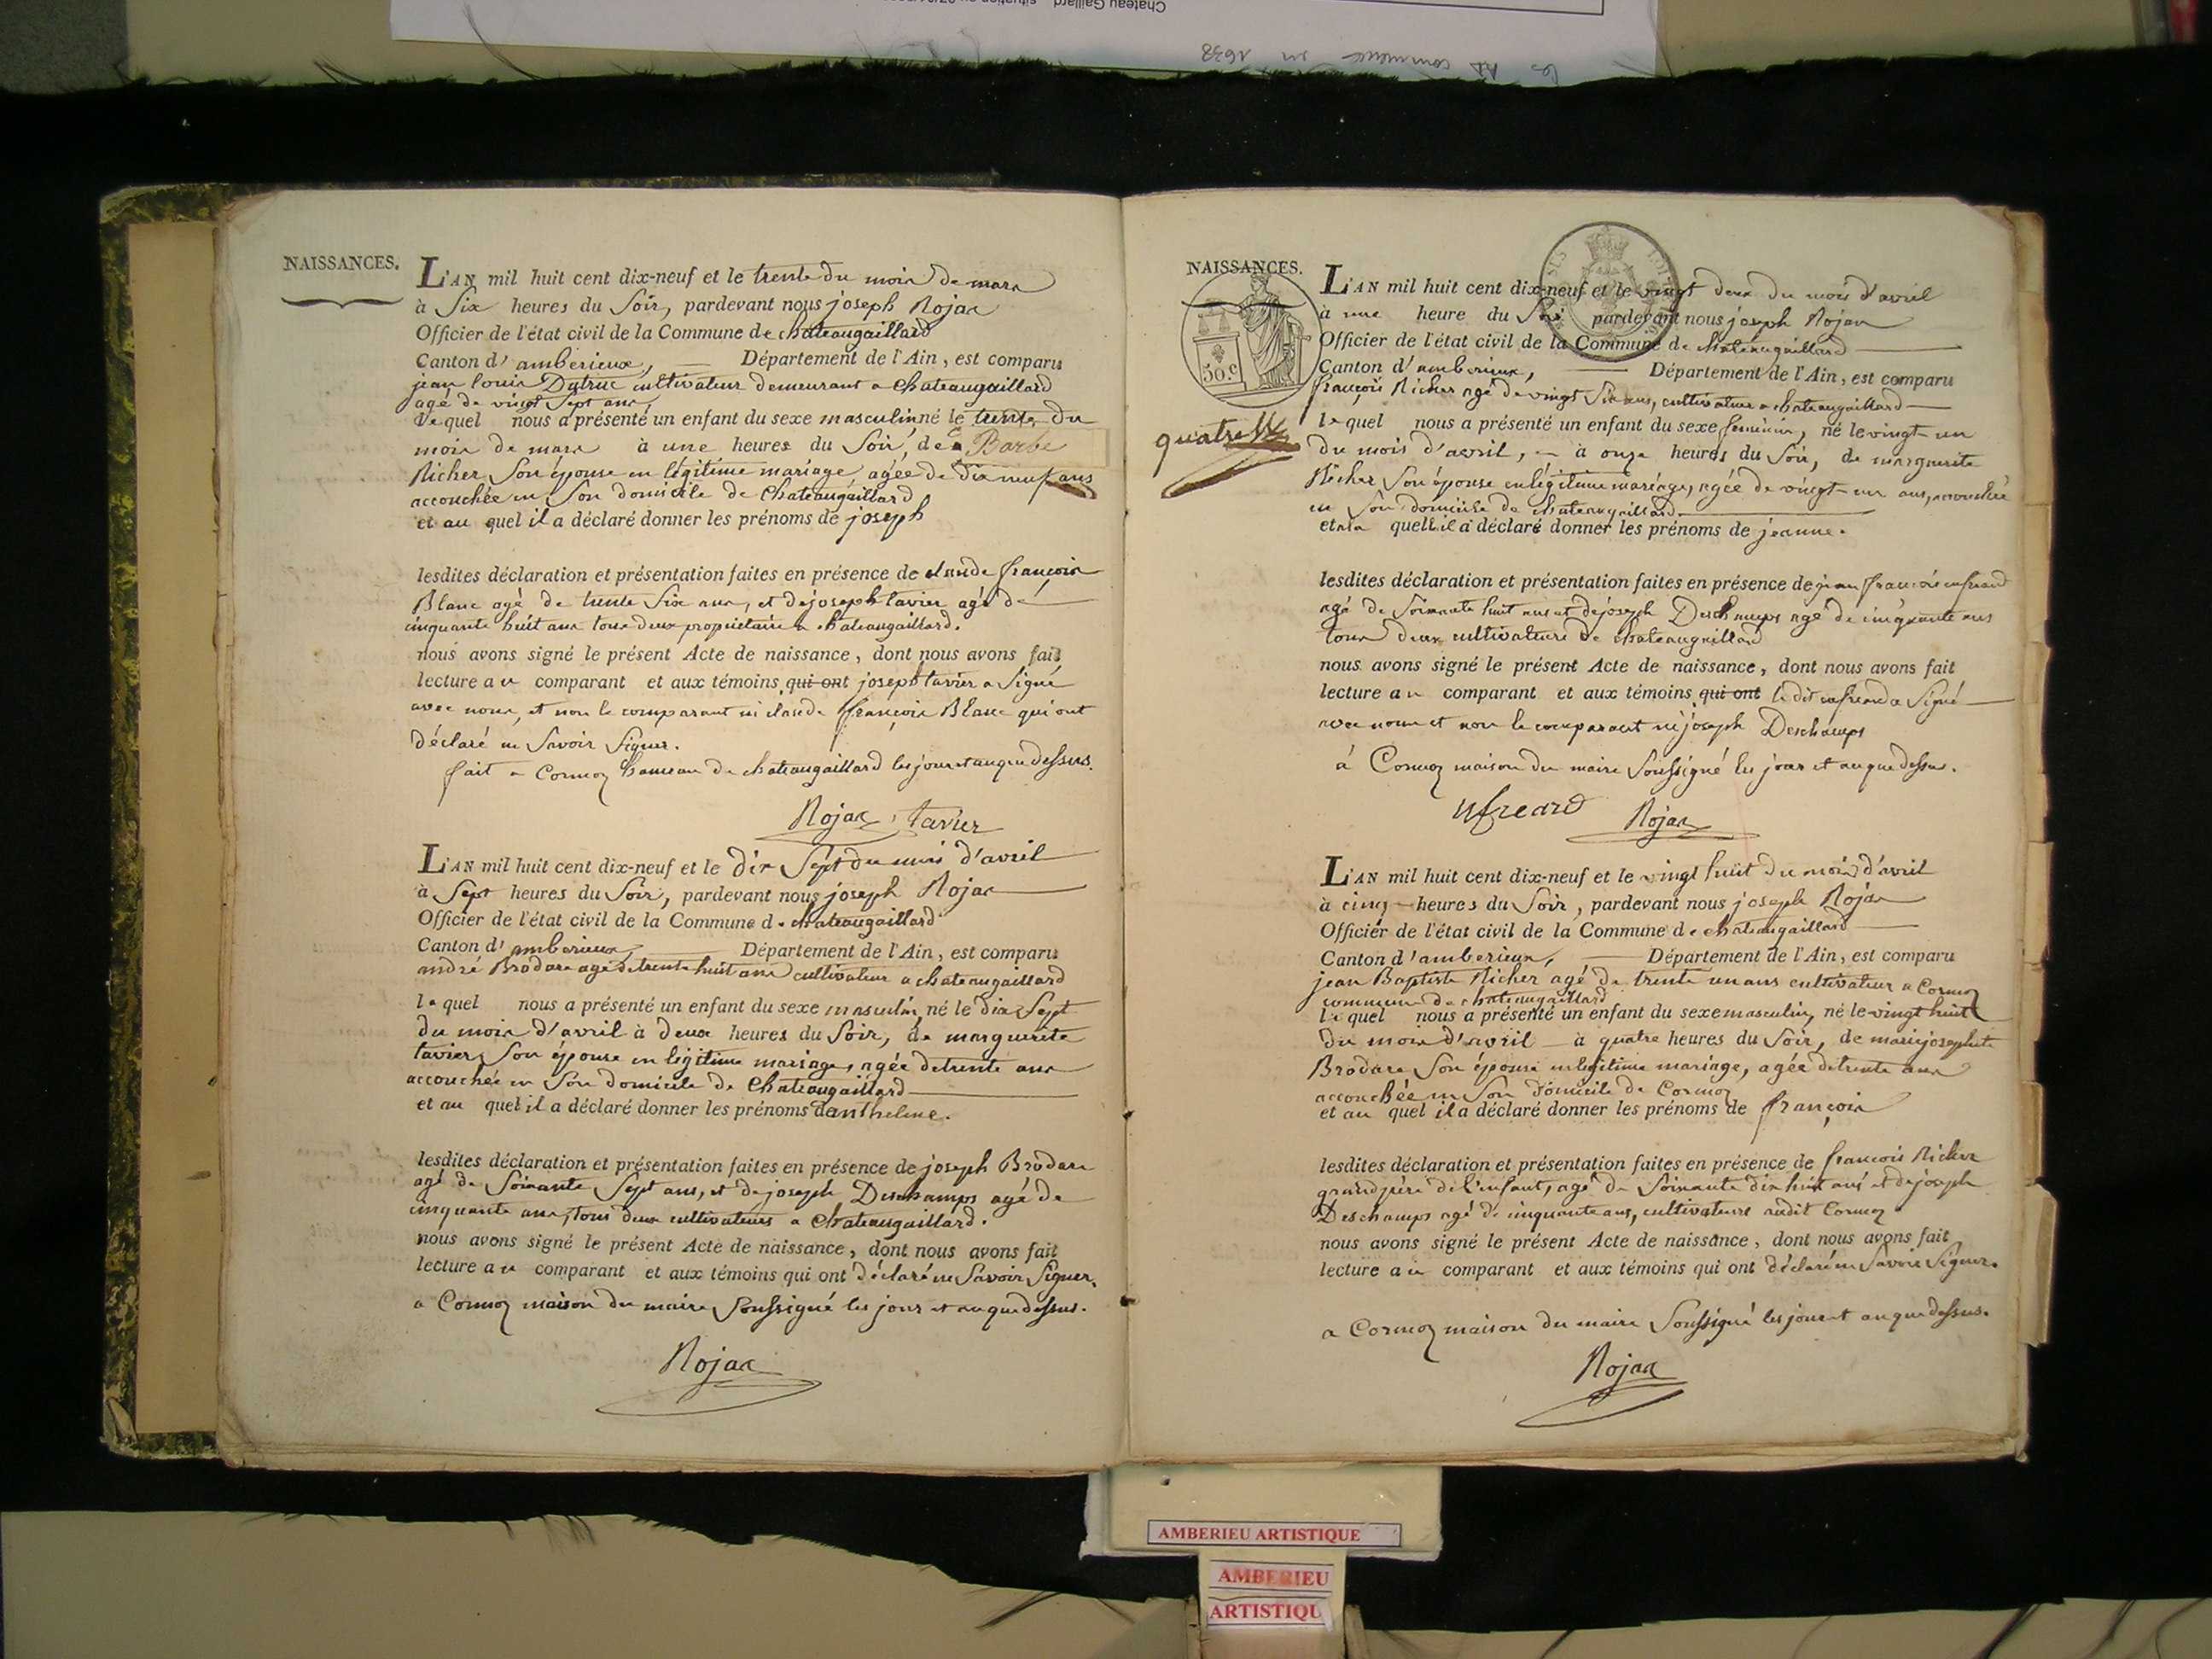 Chateau Gaillard
commence en 1638
NAISSANCES.
L'AN mil huit cent dix-neuf et le trente du mois de mars
à Six heures du Soir, pardevant nous joseph Rojas
Officier de l'état civil de la Commune de chateaugaillard
Canton d'amberieux, Département de l'Ain, est comparu
jean louis Dutruc cultivateur demeurant a chateaugaillard
agé de vingt Sept ans
le quel nous a présenté un enfant du sexe masculin né le trente du
mois de mars à une heures du Soir, de Barbe
Richer Son épouse en légitime mariage agée de dix neuf ans
accouchée en Son domicile de chateaugaillard
et au quel il a déclaré donner les prénoms de joseph
lesdites déclaration et présentation faites en présence de claude françois
Blanc agé de trente Six ans, et de joseph tavier agé de
cinquante huit ans tous deux propriétaire a chateaugaillard.
nous avons signé le présent Acte de naissance, dont nous avons fait
lecture au comparant et aux témoins, qui ont joseph tavier a Signé
avec nous, et non le comparant ni claude françois Blanc qui ont
déclaré ne Savoir Signer.
fait a Cormoz hameau de chateaugaillard les jour et an que dessus.
Rojas tavier
L'AN mil huit cent dix-neuf et le dix Sept du mois d'avril
à Sept heures du Soir, pardevant nous joseph Rojas
Officier de l'état civil de la Commune de chateaugaillard
Canton d'amberieux, Département de l'Ain, est comparu
andré Brodare agé de trente huit ans cultivateur a chateaugaillard
le quel nous a présenté un enfant du sexe masculin, né le dix Sept
du mois d'avril à deux heures du Soir, de marguerite
tavier, Son épouse en légitime mariage, agée de trente ans
accouchée en Son domicile de Chateaugaillard
et au quel il a déclaré donner les prénoms danthelme.
lesdites déclaration et présentation faites en présence de joseph Brodare
agé de Soixante Sept ans, et de joseph Deschamps agé de
cinquante ans, tous deux cultivateurs a chateaugaillard.
nous avons signé le présent Acte de naissance, dont nous avons fait
lecture au comparant et aux témoins qui ont déclaré ne Savoir Signer.
a Cormoz maison du maire Soussigné les jour et an que dessus.
Rojas
NAISSANCES.
50.c
quatre
L'AN mil huit cent dix-neuf et le vingt deux du mois d'avril
à une heure du Soir pardevant nous joseph Rojas
Officier de l'état civil de la Commune de chateaugaillard
Canton d'amberieux, Département de l'Ain, est comparu
françois Richer agé de vingt Six ans, cultivateur a chateaugaillard
le quel nous a présenté un enfant du sexe feminin, né le vingt-un
du mois d'avril, à onze heures du Soir, de marguerite
Richer Son épouse en légitime mariage, agée de vingt-un ans, accouchée
en Son domicile de chateaugaillard
et a la quelle il a déclaré donner les prénoms de jeanne.
lesdites déclaration et présentation faites en présence de jean françois enfreard
agé de Soixante huit ans et de joseph Deschamps agé de cinquante ans
tous deux cultivateurs de chateaugaillard
nous avons signé le présent Acte de naissance, dont nous avons fait
lecture au comparant et aux témoins qui ont le dit enfreard a Signé
avec nous et non le comparant ni joseph Deschamps
à Cormoz maison du maire Soussigné les jour et an que dessus.
nfreard Rojas
L'AN mil huit cent dix-neuf et le vingt huit du mois d'avril
à cinq heures du Soir, pardevant nous joseph Rojas
Officier de l'état civil de la Commune de chateaugaillard
Canton d'amberieux, Département de l'Ain, est comparu
jean Baptiste Richer agé de trente un ans cultivateur a Cormoz
commune de chateaugaillard
le quel nous a présenté un enfant du sexe masculin, né le vingt huit
du mois d'avril à quatre heures du Soir, de marie josephte
Brodare Son épouse en légitime mariage, agée de trente ans
accouchée en Son domicile de Cormoz
et au quel il a déclaré donner les prénoms de françois
lesdites déclaration et présentation faites en présence de françois Richer
grand père de l'enfant, agé de Soixante dix huit ans et de joseph
Deschamps agé de cinquante ans, cultivateurs audit Cormoz
nous avons signé le présent Acte de naissance, dont nous avons fait
lecture au comparant et aux témoins qui ont déclaré ne Savoir Signer.
a Cormoz maison du maire Soussigné les jour et an que dessus.
Rojas
AMBERIEU ARTISTIQUE
AMBERIEU
ARTISTIQU